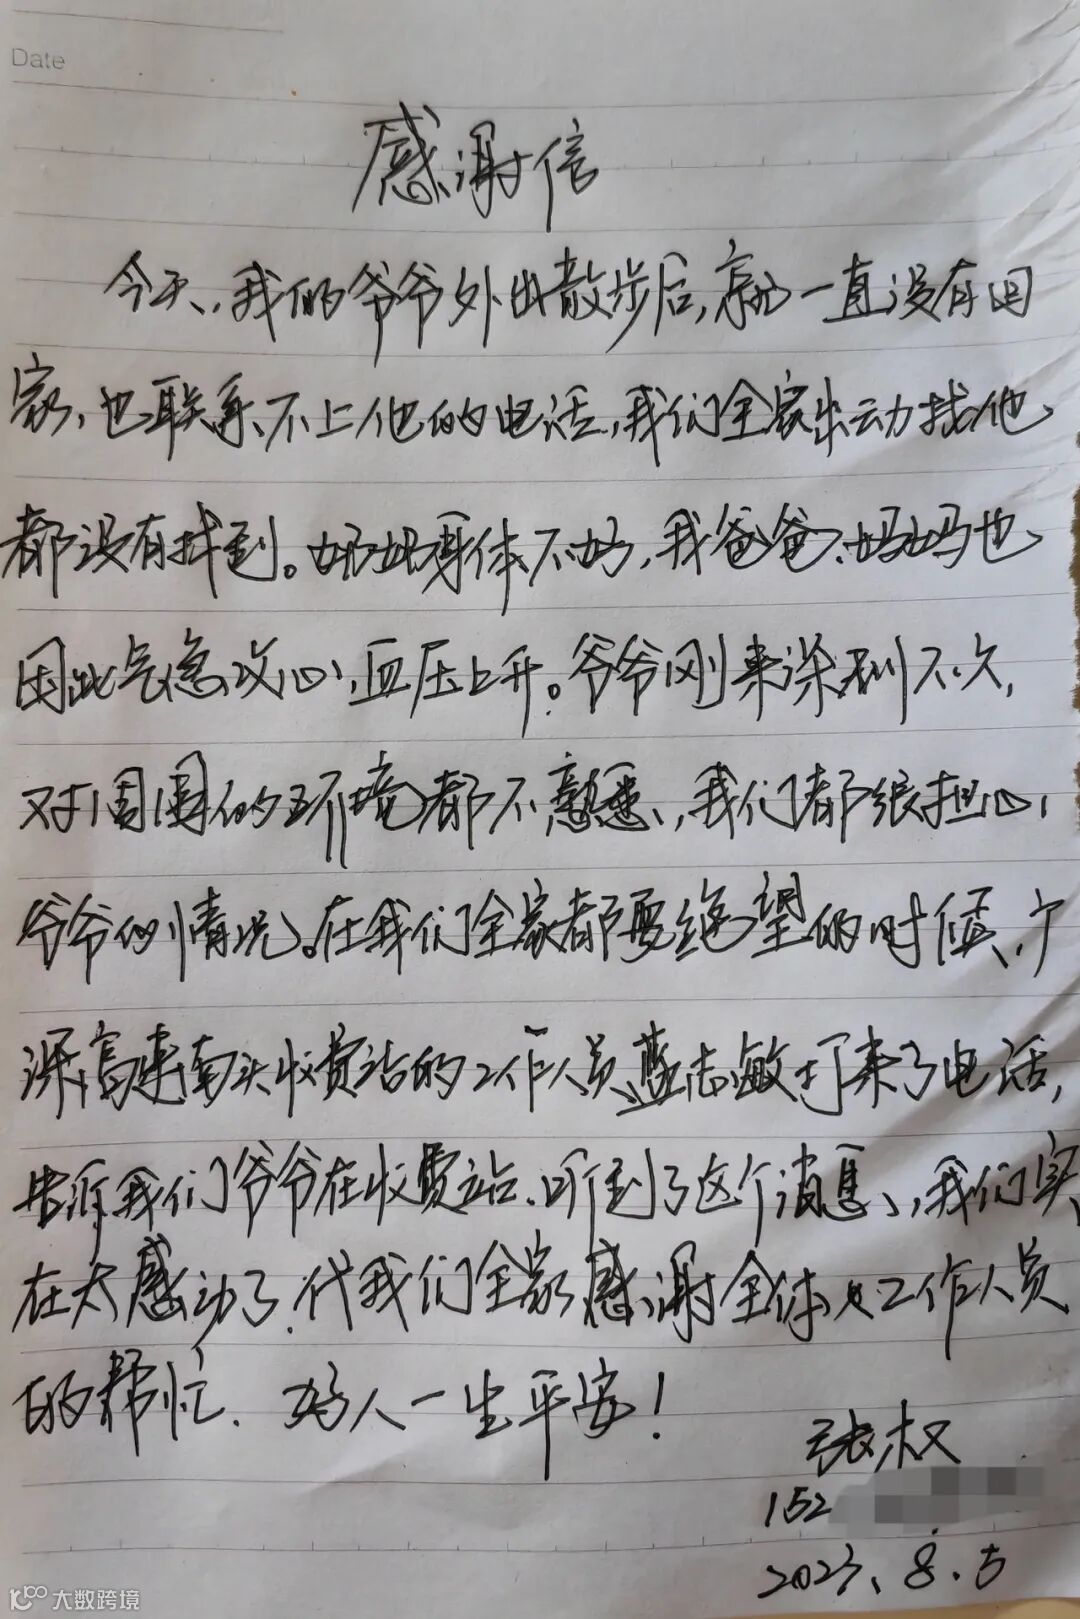 Date
感谢信
今天,我的爷爷外出散步后,就一直没有回
家,也联系不上他的电话,我们全家出动找他
都没有找到。奶奶身体不好,我爸爸、妈妈也
因此气急攻心,血压上升。爷爷刚来深圳不久,
对周围的环境都不熟悉,我们都很担心
爷爷的情况。在我们全家都要绝望的时候,广
深高速南头收费站的工作人员蓝志敏打来了电话,
告诉我们爷爷在收费站.听到了这个消息,我们实
在太感动了.代我们全家感谢全体工作人员
的帮忙.好人一生平安!
张权
152
2023.8.5
大数跨境